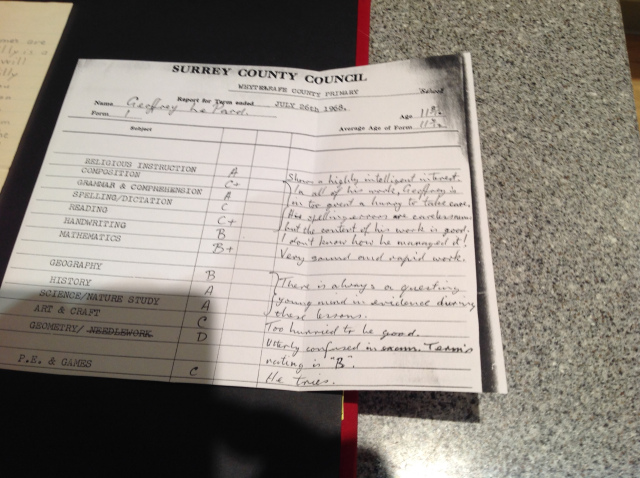 SURREY COUNTY COUNCIL
WHYTELEAFE COUNTY PRIMARY School
Name Geoffrey Le Pard. Report for Term ended JULY 26th 1968. Age
Form 1 Average Age of Form
Subject
RELIGIOUS INSTRUCTION A
COMPOSITION C+ Shows a highly intelligent interest
GRAMMAR & COMPREHENSION A in all of his work, Geoffrey is
SPELLING/DICTATION C in too great a hurry to take care.
READING C+ His spelling errors are carelessness
HANDWRITING B but the content of his work is good.
I don't know how he managed it!
MATHEMATICS B+ Very sound and rapid work.
GEOGRAPHY B
HISTORY A There is always a questing
SCIENCE/NATURE STUDY A young mind in evidence during
these lessons.
ART & CRAFT C Too hurried to be good.
GEOMETRY/ NEEDLEWORK D Utterly confused in exam. Term's
rating is "B".
P.E. & GAMES C He tries.